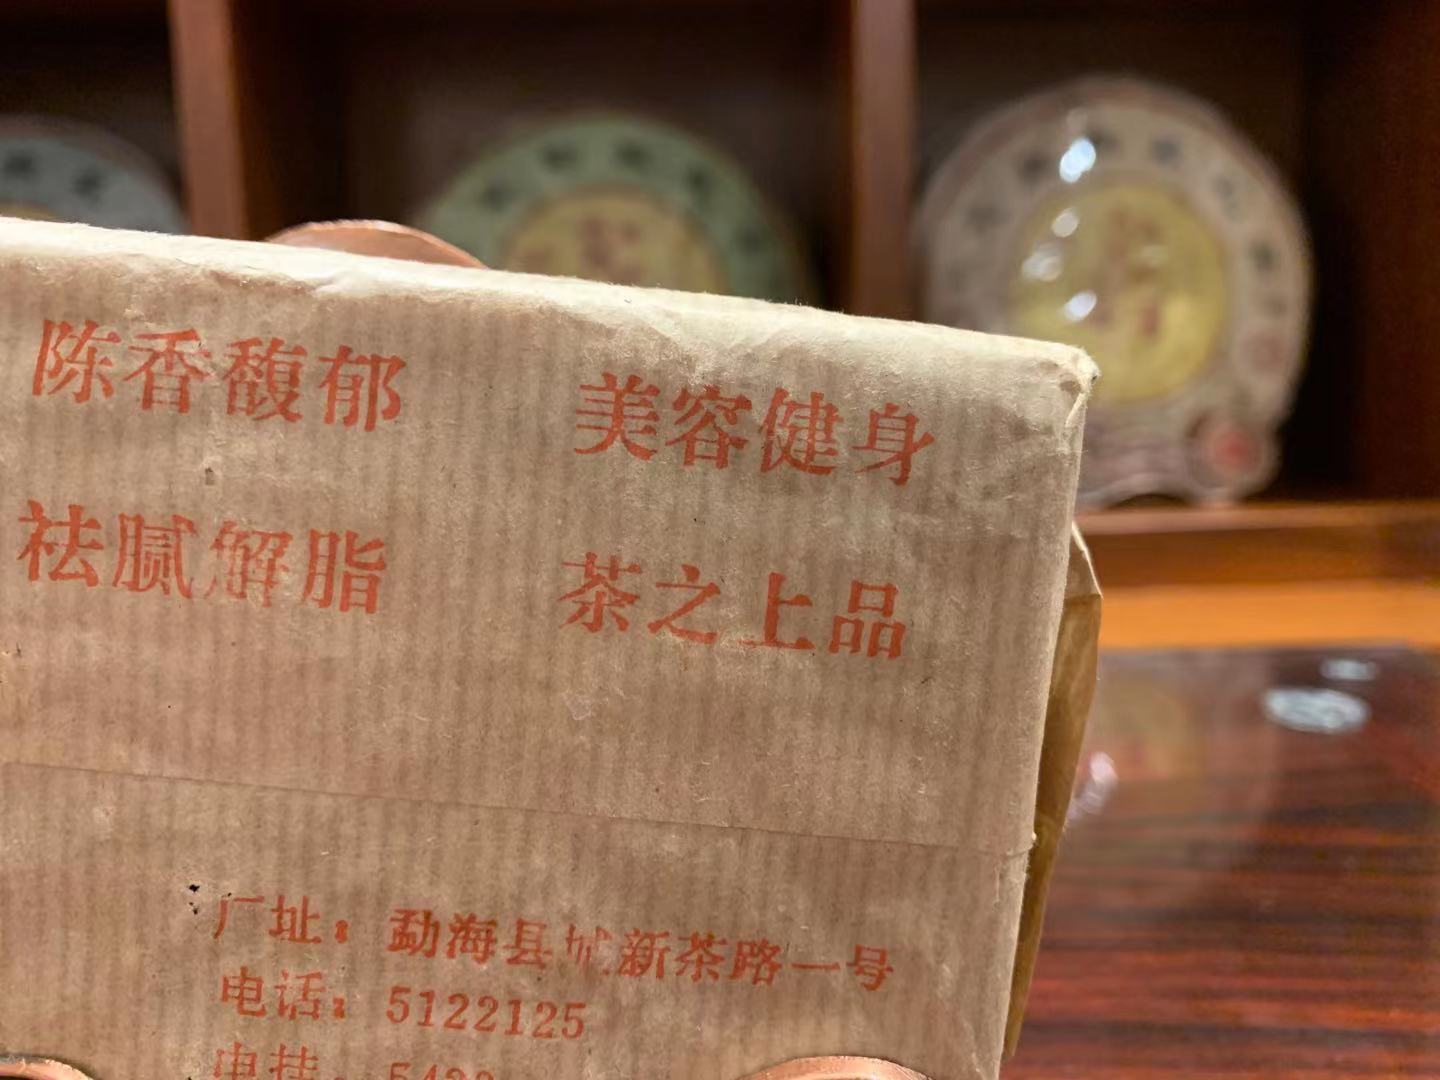 陈香馥郁 美容健身
祛腻解脂 茶之上品
厂址：勐海县城新茶路一号
电话：5122125
电挂：